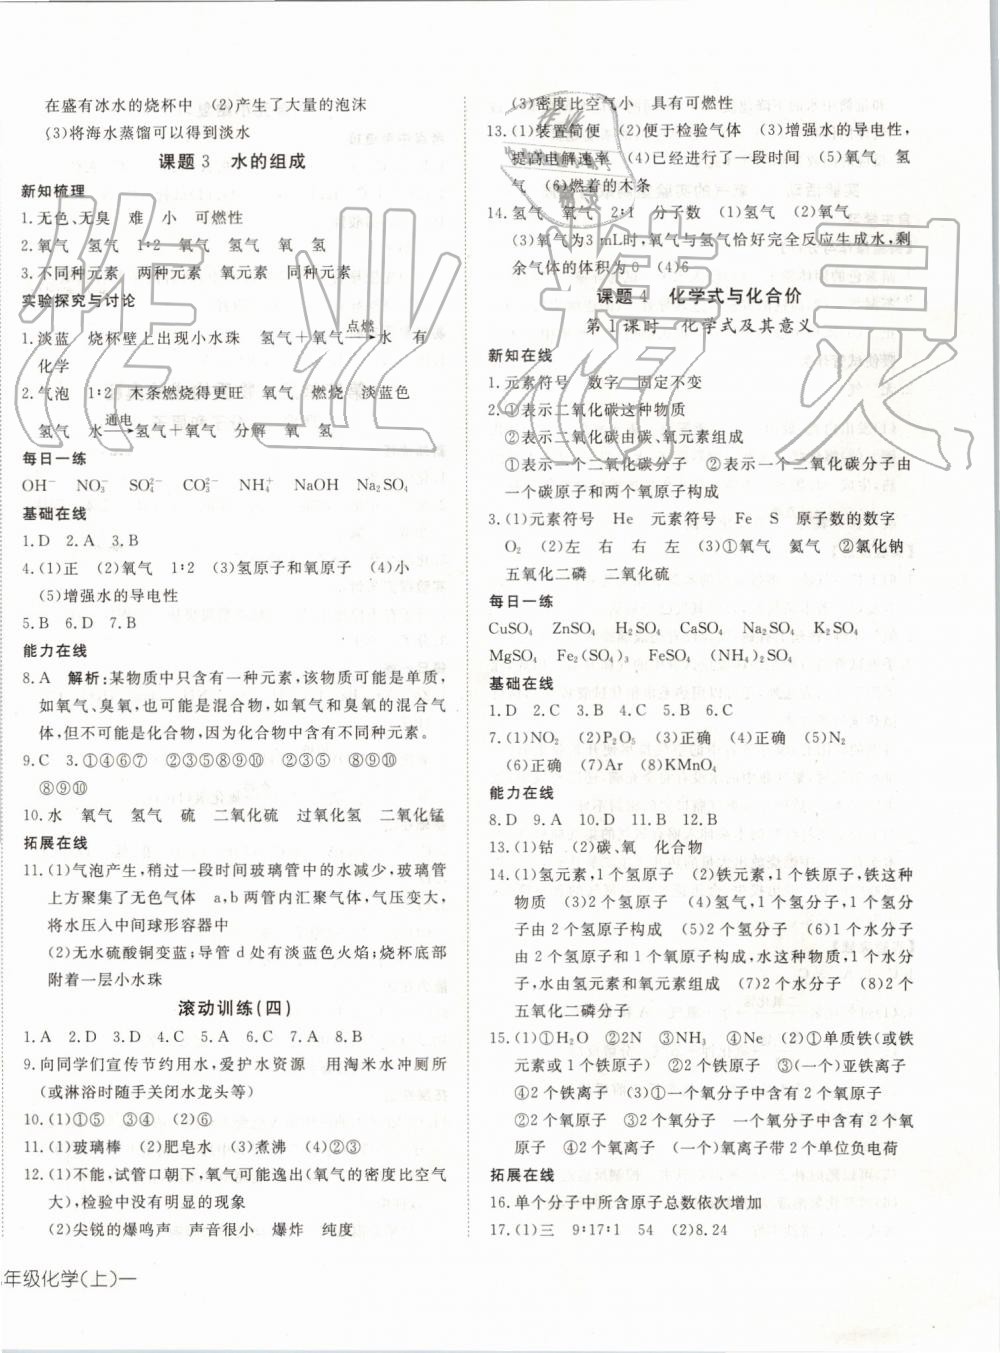 在盛有冰水的烧杯中　(2)产生了大量的泡沫
(3)将海水蒸馏可以得到淡水
课题 3　水的组成
新知梳理
1.无色、无臭　难　小　可燃性
2.氧气　氢气　1∶2　氧气　氢气　氧　氢
3.不同种元素　两种元素　氧元素　同种元素
实验探究与讨论
1.淡蓝　烧杯壁上出现小水珠　氢气＋氧气 点燃→ 水　有
化学
2.气泡　1∶2　木条燃烧得更旺　氧气　燃烧　淡蓝色
氢气　水 通电→ 氢气＋氧气　分解　氧　氢
每日一练
OH⁻　NO₃⁻　SO₄²⁻　CO₃²⁻　NH₄⁺　NaOH　Na₂SO₄
基础在线
1.D　2.A　3.B
4.(1)正　(2)氧气　1∶2　(3)氢原子和氧原子　(4)小
(5)增强水的导电性
5.B　6.D　7.B
能力在线
8.A　解析:某物质中只含有一种元素,该物质可能是单质,
如氧气、臭氧,也可能是混合物,如氧气和臭氧的混合气
体,但不可能是化合物,因为化合物中含有不同种元素。
9.C　3.①④⑥⑦　②③⑤⑧⑨⑩　②③⑤　⑧⑨⑩
⑧⑨⑩
10.水　氧气　氢气　硫　二氧化硫　过氧化氢　二氧化锰
拓展在线
11.(1)气泡产生,稍过一段时间玻璃管中的水减少,玻璃管
上方聚集了无色气体　a,b两管内汇聚气体,气压变大,
将水压入中间球形容器中
(2)无水硫酸铜变蓝;导管 d 处有淡蓝色火焰;烧杯底部
附着一层小水珠
滚动训练(四)
1.A　2.D　3.D　4.C　5.A　6.C　7.A　8.B
9.向同学们宣传节约用水,爱护水资源　用淘米水冲厕所
(或淋浴时随手关闭水龙头等)
10.(1)①⑤　③④　(2)⑥
11.(1)玻璃棒　(2)肥皂水　(3)煮沸　(4)②③
12.(1)不能,试管口朝下,氧气可能逸出(氧气的密度比空气
大),检验中没有明显的现象
(2)尖锐的爆鸣声　声音很小　爆炸　纯度
年级化学(上)一
(3)密度比空气小　具有可燃性
13.(1)装置简便　(2)便于检验气体　(3)增强水的导电性,
提高电解速率　(4)已经进行了一段时间　(5)氧气　氢
气　(6)燃着的木条
14.氢气　氧气　2∶1　分子数　(1)氢气　(2)氧气
(3)氧气为3 mL时,氧气与氢气恰好完全反应生成水,剩
余气体的体积为 0　(4)6
课题 4　化学式与化合价
第 1 课时　化学式及其意义
新知在线
1.元素符号　数字　固定不变
2.①表示二氧化碳这种物质
②表示二氧化碳由碳、氧元素组成
①表示一个二氧化碳分子　②表示一个二氧化碳分子由
一个碳原子和两个氧原子构成
3.(1)元素符号　He　元素符号　Fe　S　原子数的数字
O₂　(2)左　右　右　左　(3)①氧气　氦气　②氯化钠
五氧化二磷　二氧化硫
每日一练
CuSO₄　ZnSO₄　H₂SO₄　CaSO₄　Na₂SO₄　K₂SO₄
MgSO₄　Fe₂(SO₄)₃　FeSO₄　(NH₄)₂SO₄
基础在线
1.D　2.C　3.B　4.C　5.B　6.C
7.(1)NO₂　(2)P₂O₅　(3)正确　(4)正确　(5)N₂
(6)正确　(7)Ar　(8)KMnO₄
能力在线
8.D　9.A　10.D　11.B　12.B
13.(1)钴　(2)碳、氧　化合物
14.(1)氢元素,1个氢原子　(2)铁元素,1个铁原子,铁这种
物质　(3)2个氢原子　(4)氢气,1个氢分子,1个氢分
子由 2 个氢原子构成　(5)2个氢分子　(6)1个水分子
由 2 个氢原子和 1 个氧原子构成,水这种物质,1个水分
子,水由氢元素和氧元素组成　(7)2个水分子　(8)2个
五氧化二磷分子
15.(1)①H₂O　②2N　③NH₃　④Ne　(2)①单质铁(或铁
元素或 1 个铁原子)　②2个铁原子　③(一个)亚铁离子
④2个铁离子　(3)①一个氧分子中含有 2 个氧原子
②2个氧原子　③2个氧分子　一个氧分子中含有 2 个氧
原子　④2个氧离子　(一个)氧离子带 2 个单位负电荷
拓展在线
16.单个分子中所含原子总数依次增加
17.(1)三　9∶17∶1　54　(2)8.24
作业精灵